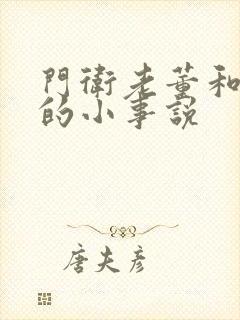 門衛老董和
的小事說
唐夫彥